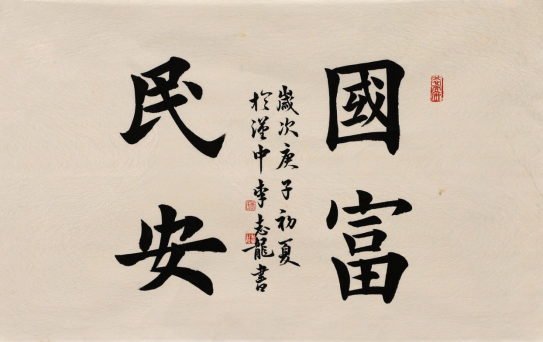 國富
民安
歲次庚子初夏
於漢中李志龍書